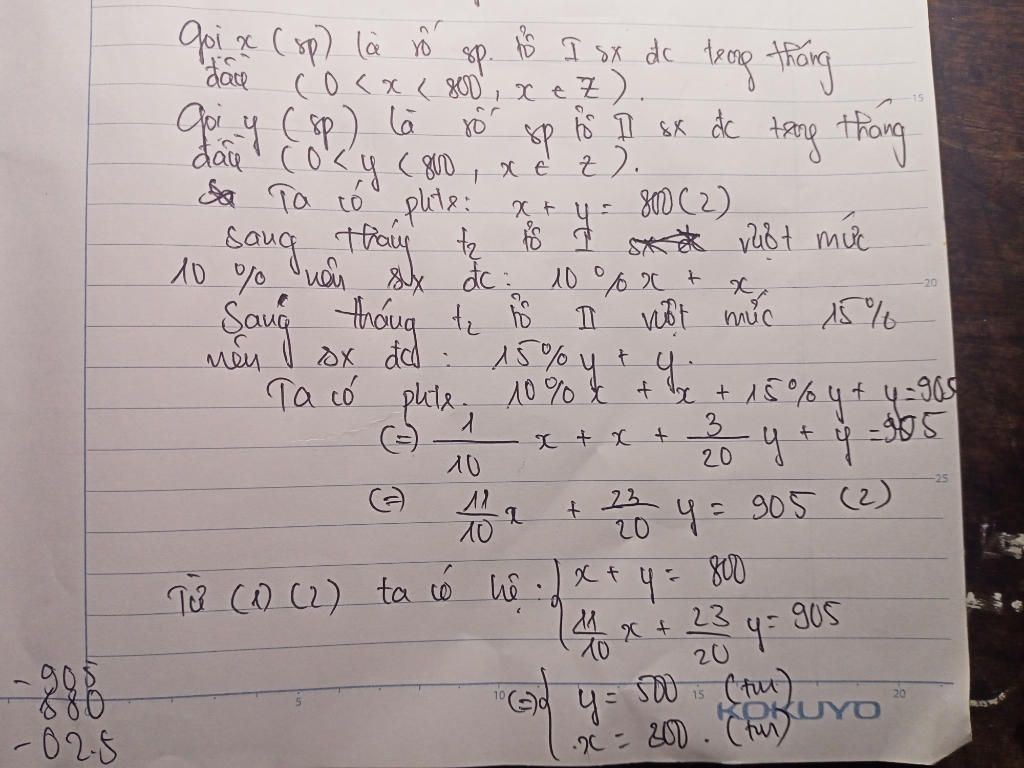 Gọi x (sp) là số sp. tổ I sx đc trong tháng
đầu ( 0 < x < 800 , x ∈ Z ).
Gọi y ( sp ) là số sp tổ II sx đc trong tháng
đầu ( 0 < y < 800 , x ∈ Z ).
Ta có phtr: x + y = 800 (2)
Sang tháy t2 tổ I vượt mức
10 % nên sx đc : 10 % x + x
Sang tháng t2 tổ II vượt mức 15 %
nên sx đc : 15 % y + y.
Ta có phtr. 10% x + x + 15 % y + y = 905
(=) 1/10 x + x + 3/20 y + y = 905
(=) 11/10 x + 23/20 y = 905 (2)
Từ (1) (2) ta có hệ : { x + y = 800
11/10 x + 23/20 y = 905
(=) { y = 500 (tm)
x = 300 . (tm)
- 905
880
- 02.5
15
20
25
5
10
15
20
KOKUYO